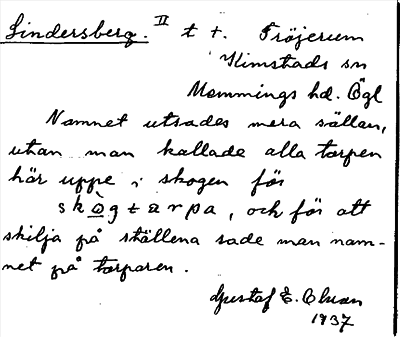 Lindersberg. II t t. Fröjerum
Kimstads sn
Memmings hd. Ögl
Namnet utsades mera sällan,
utan man kallade alla torpen
här uppe i skogen för
skògtarpa, och för att
skilja på ställena sade man nam-
net på torparen.
Gustaf E. Olsson
1937